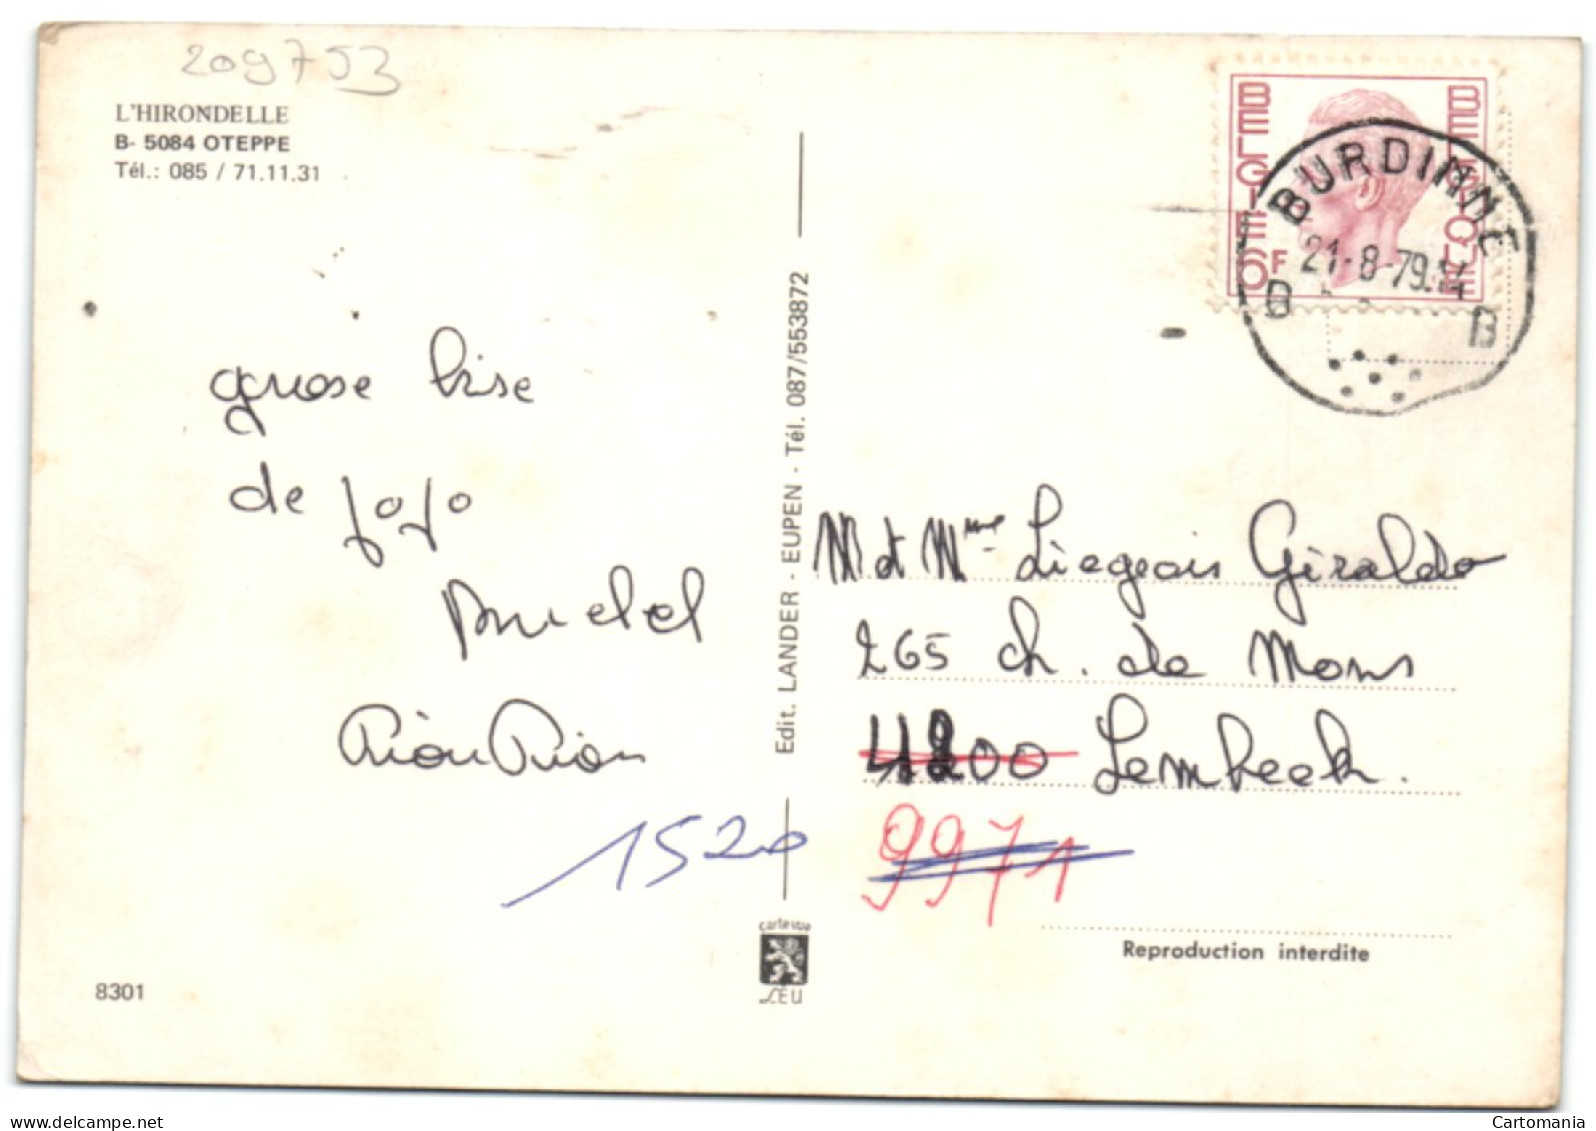 209753
L'HIRONDELLE
B- 5084 OTEPPE
Tél.: 085 / 71.11.31
BELGIE
BELGIQUE
6F
BURDINNE
21-8-79.14
B B
grosse bise
de jojo
Michel
Edit. LANDER - EUPEN - Tél. 087/553872
M et Mme Liegeois Giraldo
265 ch. de Mons
4200 Lembeek.
9971
1520
cartevue
LEU
Reproduction interdite
8301
Cartomania
www.delcampe.net